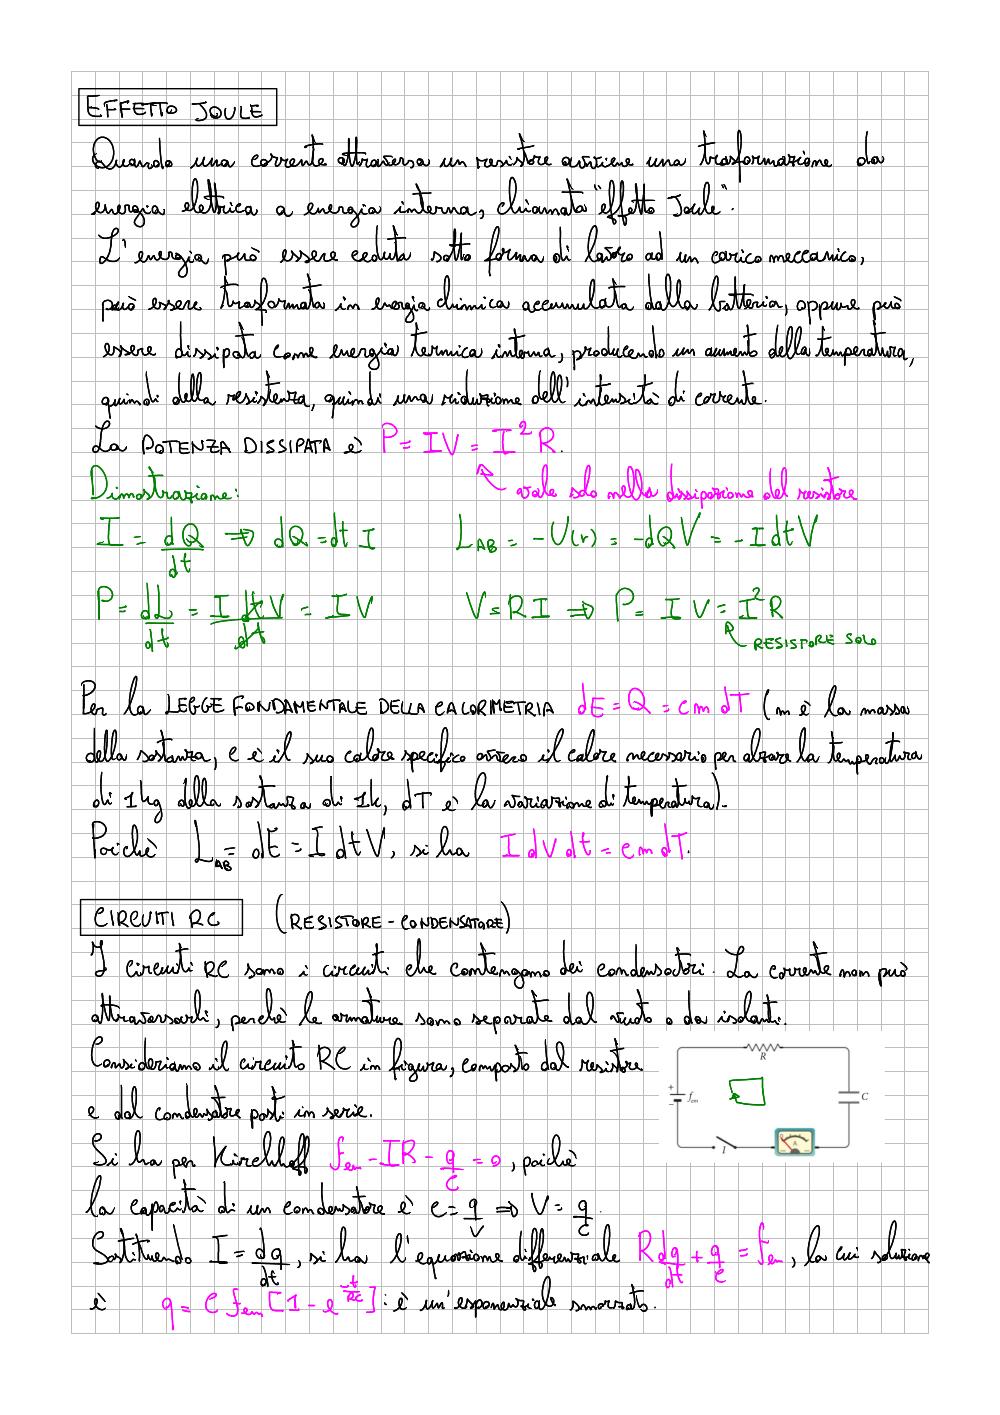 EFFETTO JOULE
Quando una corrente attraversa un resistore avviene una trasformazione da
energia elettrica a energia interna, chiamata "effetto Joule".
L'energia può essere ceduta sotto forma di lavoro ad un carico meccanico,
può essere trasformata in energia chimica accumulata dalla batteria, oppure può
essere dissipata come energia termica interna, producendo un aumento della temperatura,
quindi della resistenza, quindi una riduzione dell'intensità di corrente.
La POTENZA DISSIPATA è P = IV = I²R.
vale solo nella dissipazione del resistore
Dimostrazione:
I = dQ/dt ⇒ dQ = dt I L_AB = -U(r) = -dQ V = -I dt V
P = dL/dt = I dt V/dt = IV V = RI ⇒ P = I V = I²R
RESISTORE SOLO
Per la LEGGE FONDAMENTALE DELLA CALORIMETRIA dE = Q = cm dT (m è la massa
della sostanza, c è il suo calore specifico ovvero il calore necessario per alzare la temperatura
di 1kg della sostanza di 1k, dT è la variazione di temperatura).
Poichè L_AB = dE = I dt V, si ha I dV dt = cm dT.
CIRCUITI RC (RESISTORE - CONDENSATORE)
I circuiti RC sono i circuiti che contengono dei condensatori. La corrente non può
attraversarli, perchè le armature sono separate dal vuoto o da isolanti.
Consideriamo il circuito RC in figura, composto dal resistore
e dal condensatore posti in serie.
R
+
fem
-
C
I
A
Si ha per Kirchhoff fem - IR - q/C = 0, poichè
la capacità di un condensatore è c = q/V ⇒ V = q/C.
Sostituendo I = dq/dt, si ha l'equazione differenziale R dq/dt + q/C = fem, la cui soluzione
è q = C fem [1 - e^(-t/RC)]: è un'esponenziale smorzato.